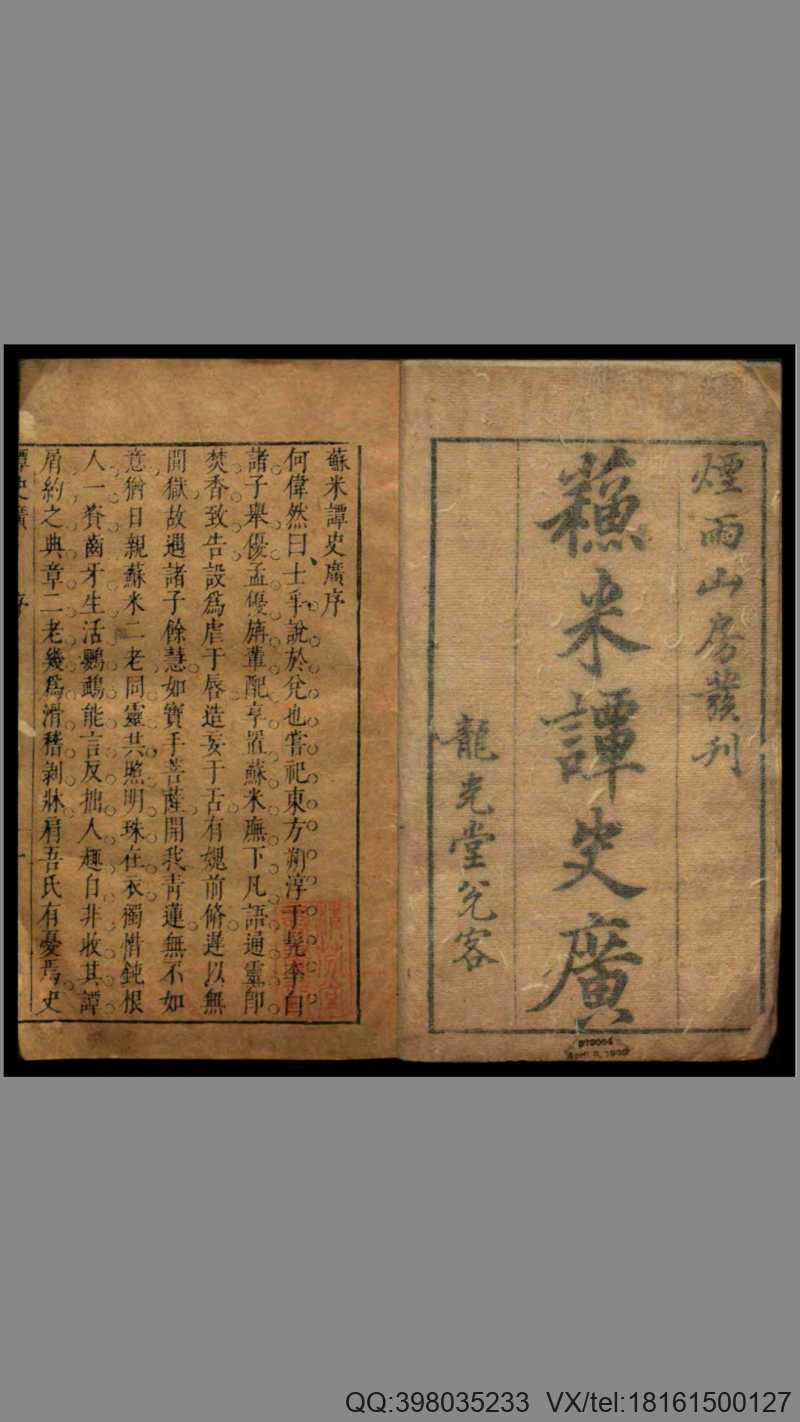 煙雨山房發刊
蘓米譚史廣
龍光堂兌客
蘇米譚史廣序
何偉然曰士乎說於兌也嘗祀東方朔淳于髡李白
諸子舉優孟優旃輩配享置蘇米廡下凡語通靈卽
焚香致告設爲虐于唇造妄于舌有媿前脩遲以無
間獄故遇諸子餘慧如寶手菩薩開我靑蓮無不如
意猶日親蘇米二老同靈共照明珠在衣獨惜鈍根
人一賚齒牙生活鸚鵡能言反拙人趣自非收其譚
屑約之典章二老幾爲滑稽剥牀肩吾氏有憂焉史
譚史廣 序 一
QQ:398035233 VX/tel:18161500127